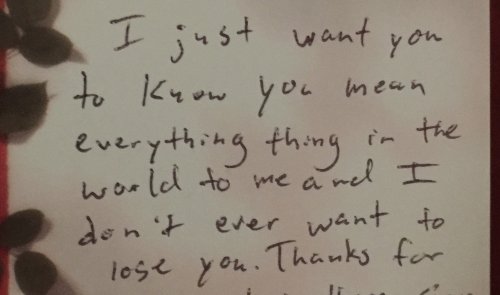 I just want you
to know you mean
everything thing in the
world to me and I
don't ever want to
lose you. Thanks for